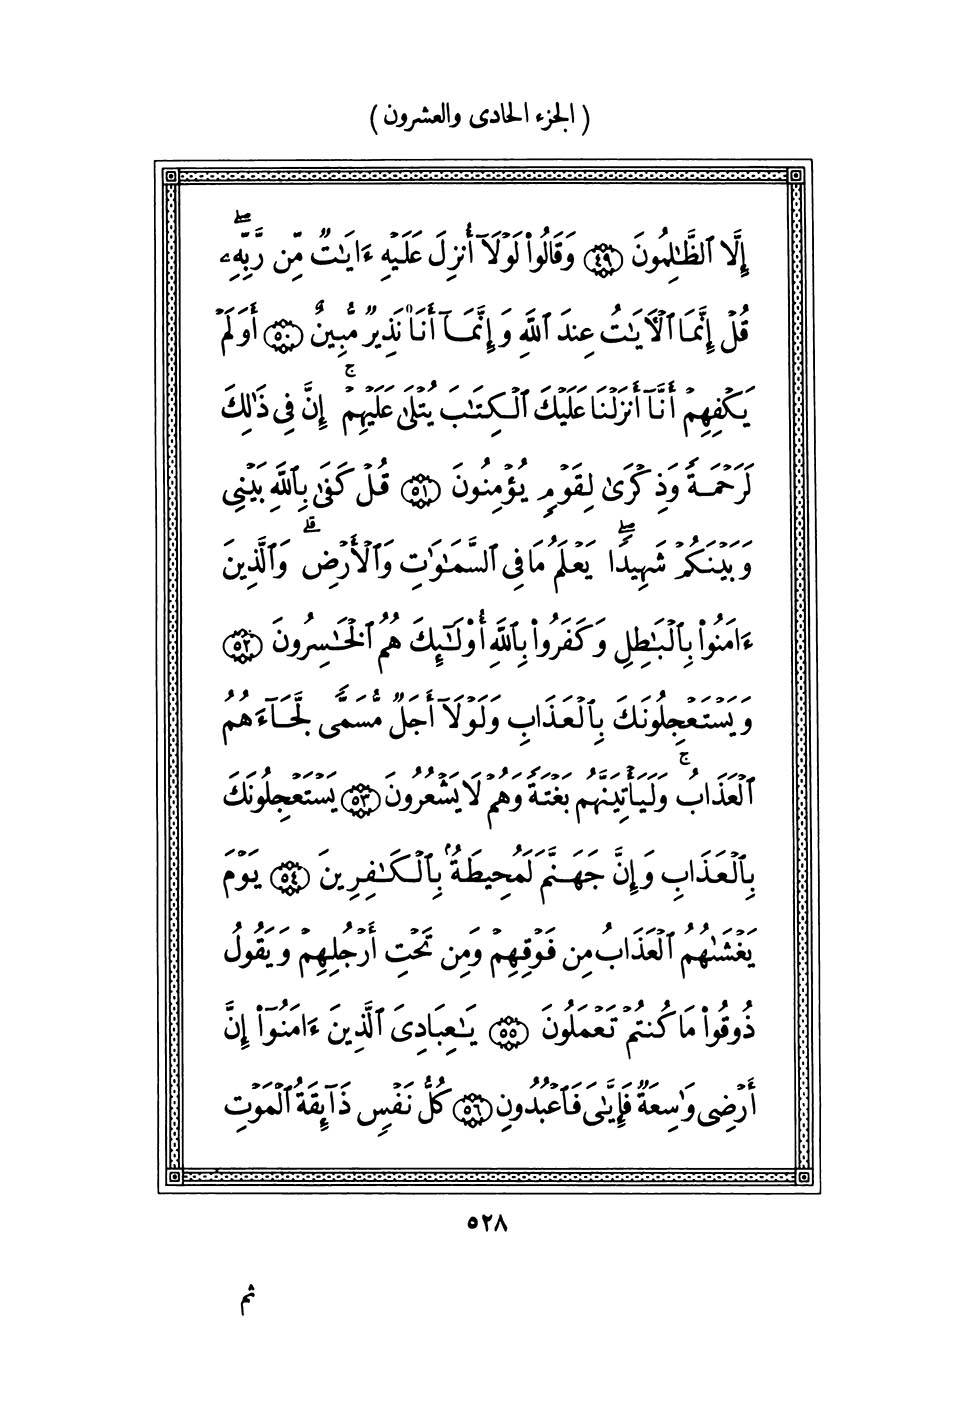 ( الجزء الحادى والعشرون )
إِلَّا ٱلظَّٰلِمُونَ ﴿٤٩﴾ وَقَالُوا۟ لَوْلَآ أُنزِلَ عَلَيْهِ ءَايَٰتٌ مِّن رَّبِّهِۦ ۖ
قُلْ إِنَّمَا ٱلْـَٔايَٰتُ عِندَ ٱللَّهِ وَإِنَّمَآ أَنَا۠ نَذِيرٌ مُّبِينٌ ﴿٥٠﴾ أَوَلَمْ
يَكْفِهِمْ أَنَّآ أَنزَلْنَا عَلَيْكَ ٱلْكِتَٰبَ يُتْلَىٰ عَلَيْهِمْ ۚ إِنَّ فِى ذَٰلِكَ
لَرَحْمَةً وَذِكْرَىٰ لِقَوْمٍ يُؤْمِنُونَ ﴿٥١﴾ قُلْ كَفَىٰ بِٱللَّهِ بَيْنِى
وَبَيْنَكُمْ شَهِيدًا ۖ يَعْلَمُ مَا فِى ٱلسَّمَٰوَٰتِ وَٱلْأَرْضِ ۗ وَٱلَّذِينَ
ءَامَنُوا۟ بِٱلْبَٰطِلِ وَكَفَرُوا۟ بِٱللَّهِ أُو۟لَٰٓئِكَ هُمُ ٱلْخَٰسِرُونَ ﴿٥٢﴾
وَيَسْتَعْجِلُونَكَ بِٱلْعَذَابِ وَلَوْلَآ أَجَلٌ مُّسَمًّى لَّجَآءَهُمُ
ٱلْعَذَابُ ۚ وَلَيَأْتِيَنَّهُم بَغْتَةً وَهُمْ لَا يَشْعُرُونَ ﴿٥٣﴾ يَسْتَعْجِلُونَكَ
بِٱلْعَذَابِ وَإِنَّ جَهَنَّمَ لَمُحِيطَةٌۢ بِٱلْكَٰفِرِينَ ﴿٥٤﴾ يَوْمَ
يَغْشَىٰهُمُ ٱلْعَذَابُ مِن فَوْقِهِمْ وَمِن تَحْتِ أَرْجُلِهِمْ وَيَقُولُ
ذُوقُوا۟ مَا كُنتُمْ تَعْمَلُونَ ﴿٥٥﴾ يَٰعِبَادِىَ ٱلَّذِينَ ءَامَنُوٓا۟ إِنَّ
أَرْضِى وَٰسِعَةٌ فَإِيَّٰىَ فَٱعْبُدُونِ ﴿٥٦﴾ كُلُّ نَفْسٍ ذَآئِقَةُ ٱلْمَوْتِ
٥٢٨
ثم